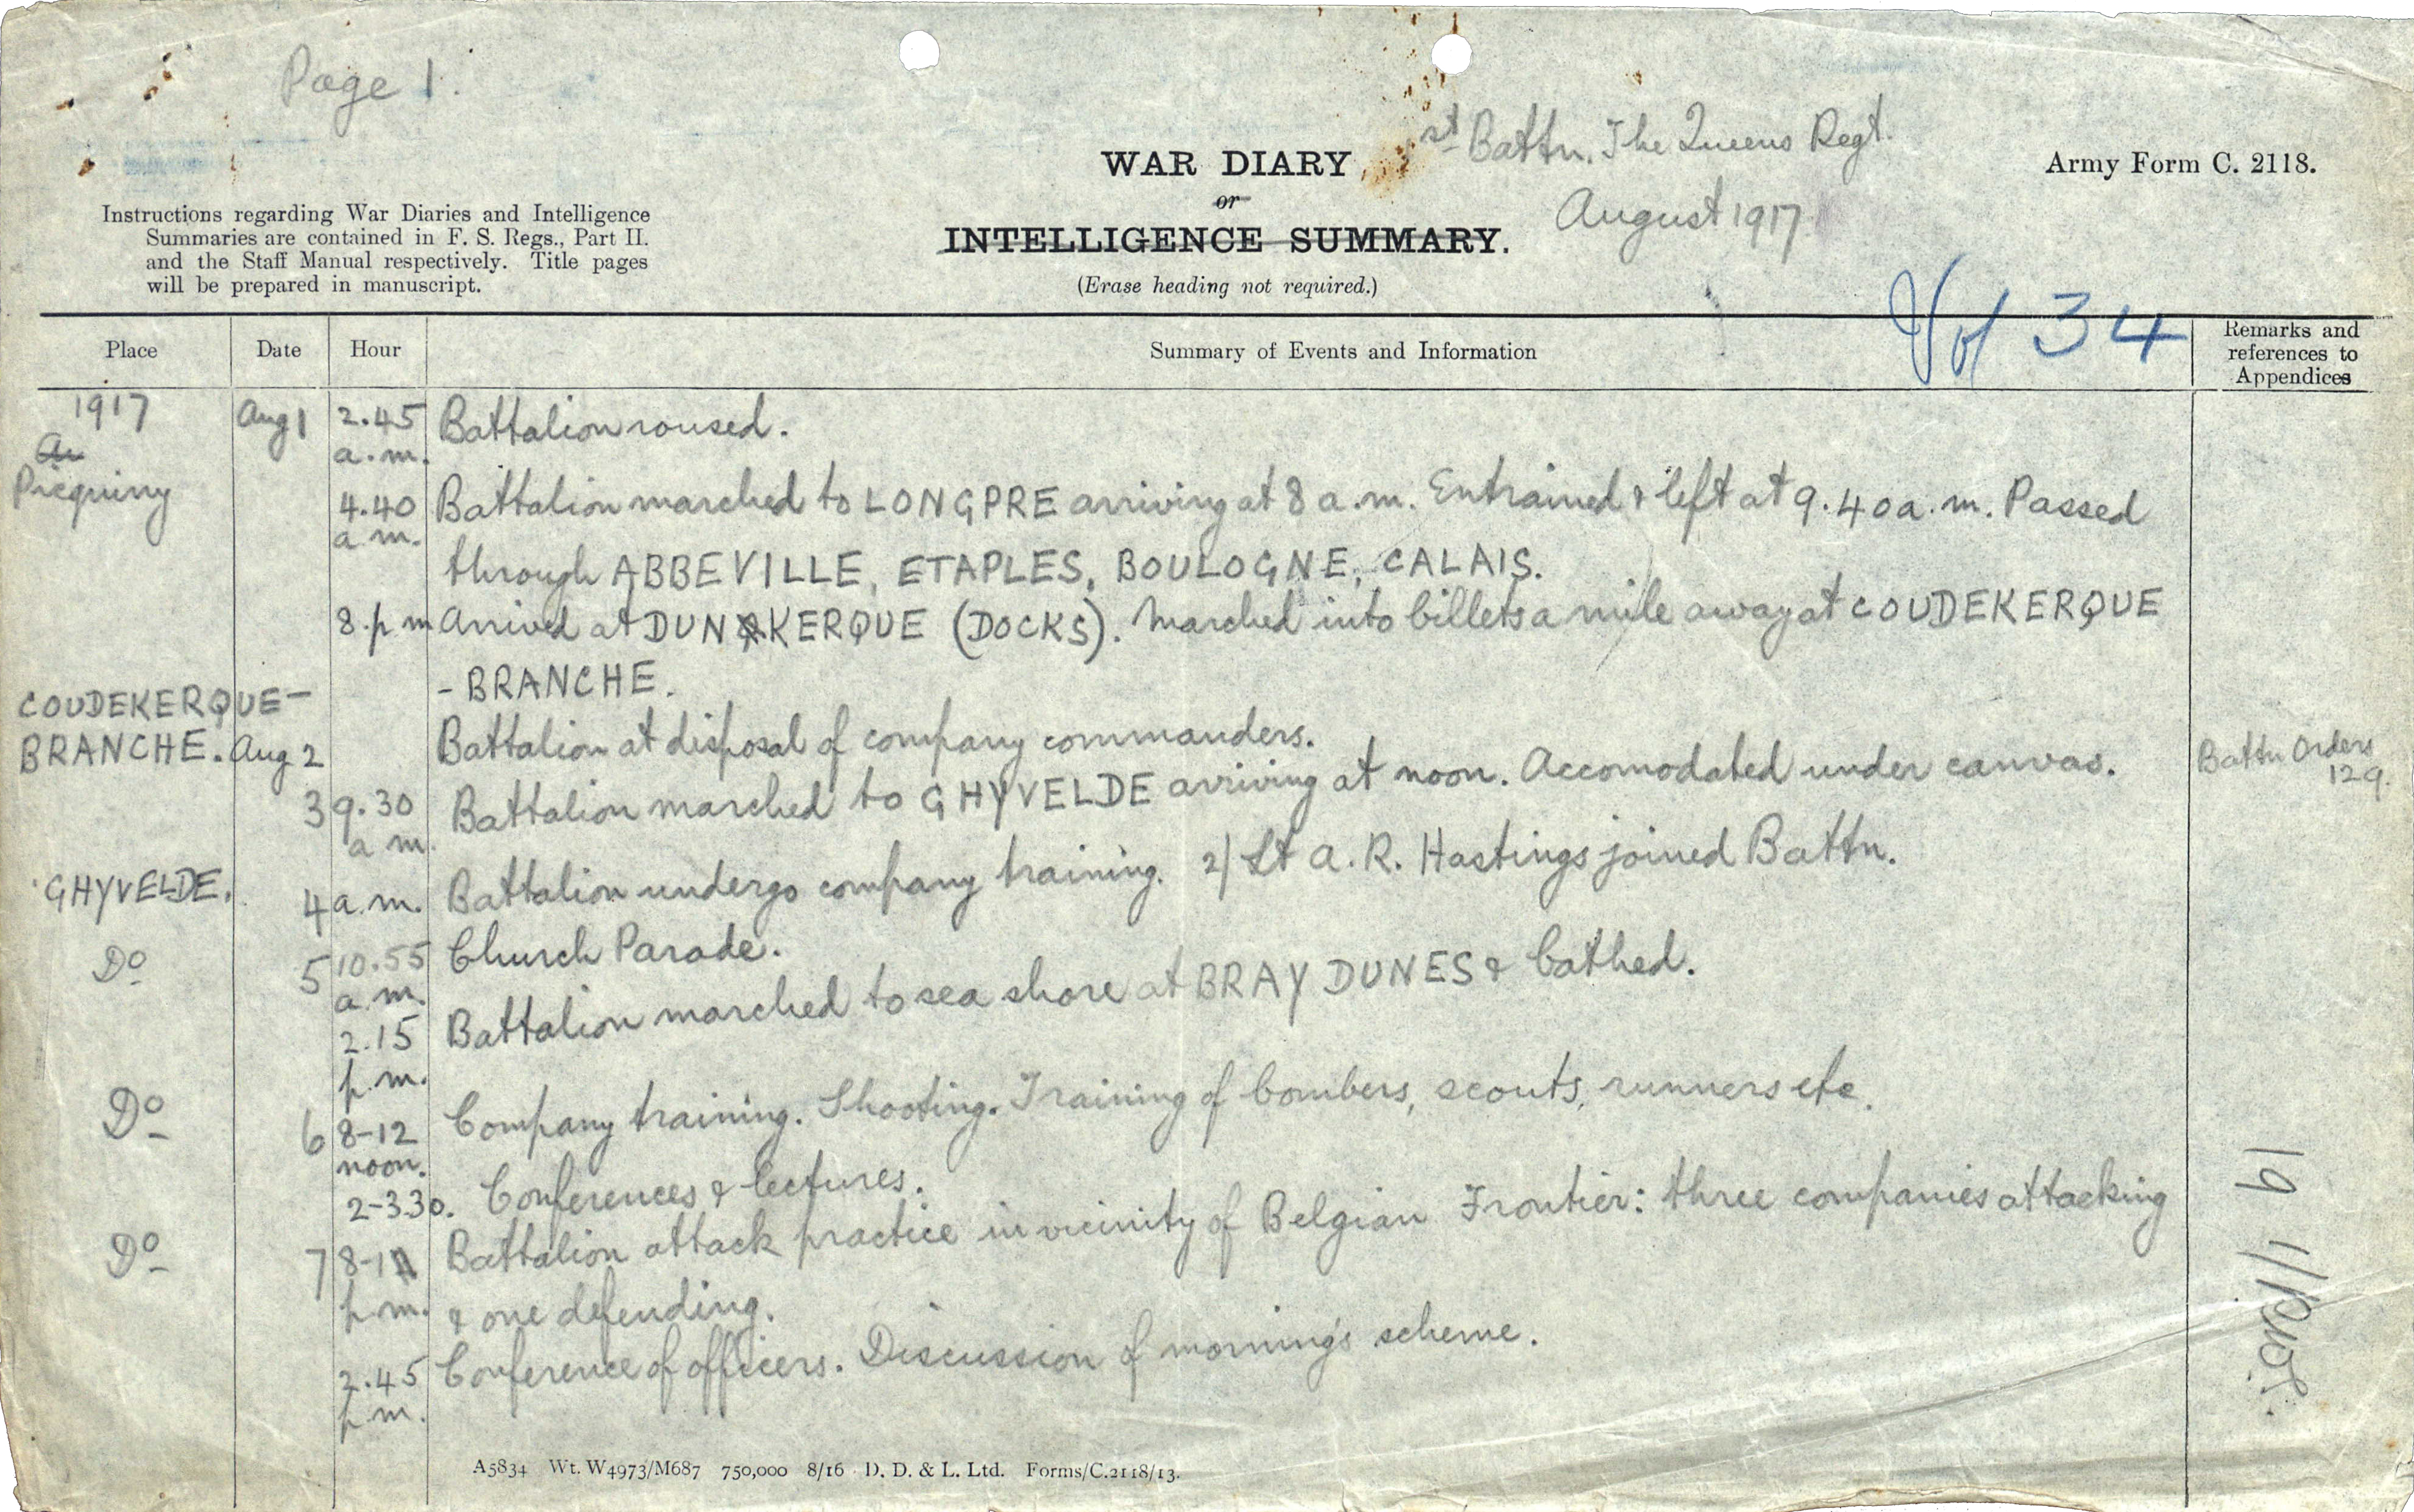 Page 1.
st Battn. The Queens Regt.
WAR DIARY
Army Form C. 2118.
or
August 1917
Instructions regarding War Diaries and Intelligence
Summaries are contained in F. S. Regs., Part II.
and the Staff Manual respectively. Title pages
will be prepared in manuscript.
INTELLIGENCE SUMMARY.
(Erase heading not required.)
Vol 34
Place Date Hour Summary of Events and Information Remarks and
references to
Appendices
1917 Aug 1 2.45 Battalion roused.
Au a.m.
Picquiny
4.40 Battalion marched to LONGPRE arriving at 8 a.m. Entrained & left at 9.40 a.m. Passed
a.m.
through ABBEVILLE, ETAPLES, BOULOGNE, CALAIS.
8 p m Arrived at DUNKERQUE (DOCKS). Marched into billets a mile away at COUDEKERQUE
- BRANCHE.
COUDEKERQUE-
BRANCHE. Aug 2 Battalion at disposal of company commanders.
Battn Orders
129.
3 9.30 Battalion marched to GHYVELDE arriving at noon. Accomodated under canvas.
a m.
GHYVELDE. 4 a.m. Battalion undergo company training. 2/Lt A. R. Hastings joined Battn.
Do 5 10.55 Church Parade.
a.m.
2.15 Battalion marched to sea shore at BRAY DUNES & bathed.
p.m.
Do 6 8-12 Company training. Shooting. Training of bombers, scouts, runners etc.
noon.
2-3.30. Conferences & lectures.
Do 7 8-1 Battalion attack practice in vicinity of Belgian Frontier: three companies attacking
p.m. & one defending.
2.45 Conference of officers. Discussion of morning's scheme.
p.m.
A5834 Wt. W4973/M687 750,000 8/16 D. D. & L. Ltd. Forms/C.2118/13.